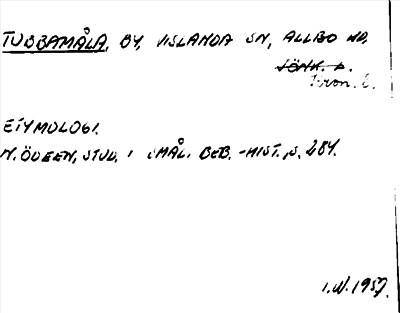 TUBBAMÅLA, BY, VISLANDA SN, ALLBO HD.
JÖNK. L.
Kron. L.
ETYMOLOGI.
N. ÖDEEN, STUD. I SMÅL. BEB.-HIST., S. 284.
I.W. 1957.